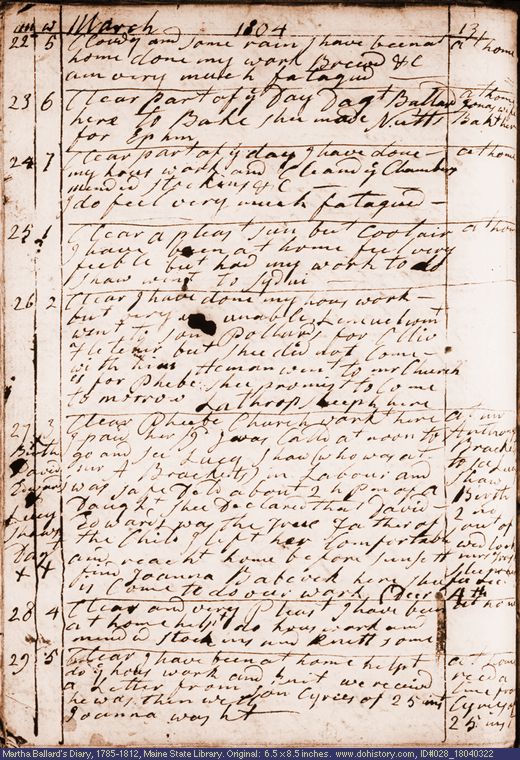 March 1804 13
22 5 Clowdy and some rain I have been at at home
home done my work Brewd &C
am very much fatagud
23 6 Clear part of y Day Dagt Ballard at home
here to Bake shee made Nutts
for Ephm
24 7 Clear part of y day I have done at home
my hous work and Cleand y Chamber
mended stockins &C
I do feel very much fatagud
25 1 Clear a pleast sun but Cool air at home
I have been at home feel very
feeble but had my work to do
26 2 Clear I have done my hous work
but very
went to son Pollards for
but shee did not Come
with him went to mr Church
es for Phebe shee promist to Come
to morrow Lathrop sleeps here
27 3 Clear Phebe Church work here at mr
I paid her I was Calld at noon to
go and see Lucy Shaw who was at to see Lucy
mr Brackets in Labour and Shaw
was safe Deld about 2 h pm of a Birth
Daught shee Declared that David 2 nd
Edwards was the true Father of out of
the Child I left her Comfortable wed lock
and reacht home before sunsett
find Joanna Babcock here shee
is come to do our work
Birth
David
Lucy
Shaws
Dagt
X X
28 4 Clear and very Pleast I have been at home
at home helpt do hous work and
mended stockins and knitt some
29 5 Clear I have been at home helpt at home
do y hous work and knit we receivd
a Letter from son Cyrus of 25 inst
he was then well Cyrus of
Joanna washt 25 inst
Martha Ballard's Diary, 1785-1812, Maine State Library. Original: 6.5 x 8.5 inches. www.dohistory.com, ID#028_18040322